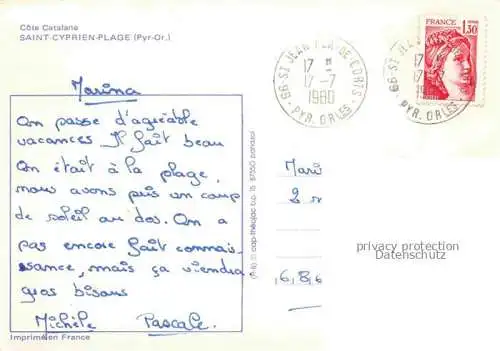 Côte Catalane
SAINT-CYPRIEN-PLAGE (Pyr-Or.)
Marina
On passe d'agréable
vacances Il fait beau
On était à la plage,
nous avons pris un coup
de soleil au dos. On a
pas encore fait connais-
ssance, mais ça viendra
gros bisous
Michèle Pascale
Imprimé en France
cap-théojac
66-ST JEAN-PLA-DE-CORTS
17 H
17-7
1980
PYR. ORLES
FRANCE
1,30
66-ST JEAN
17
17
198
PYR. ORLES
Mari
2
6.8.6
privacy protection
Datenschutz